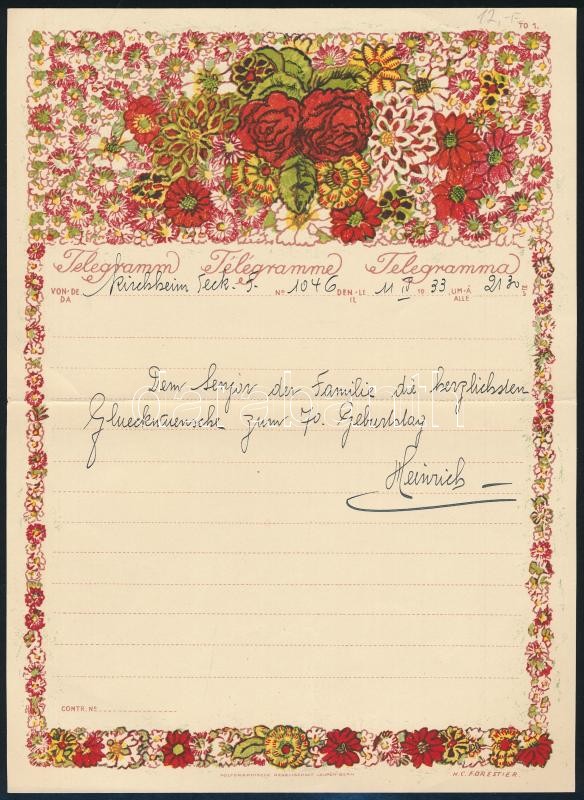 12,-F
TO 1.
Telegramm Télégramme Telegramma
VON·DE DA Kirchheim Teck. F. No 1046 DEN·LE IL 11 IV 1933 UM·À ALLE 2130
Dem Senjor der Familie die herzlichsten
Glueckwuensche zum 70. Geburtstag
Heinrich
CONTR. No
POLYGRAPHISCHE GESELLSCHAFT LAUPEN-BERN
H.C. FORESTIER
darabanth